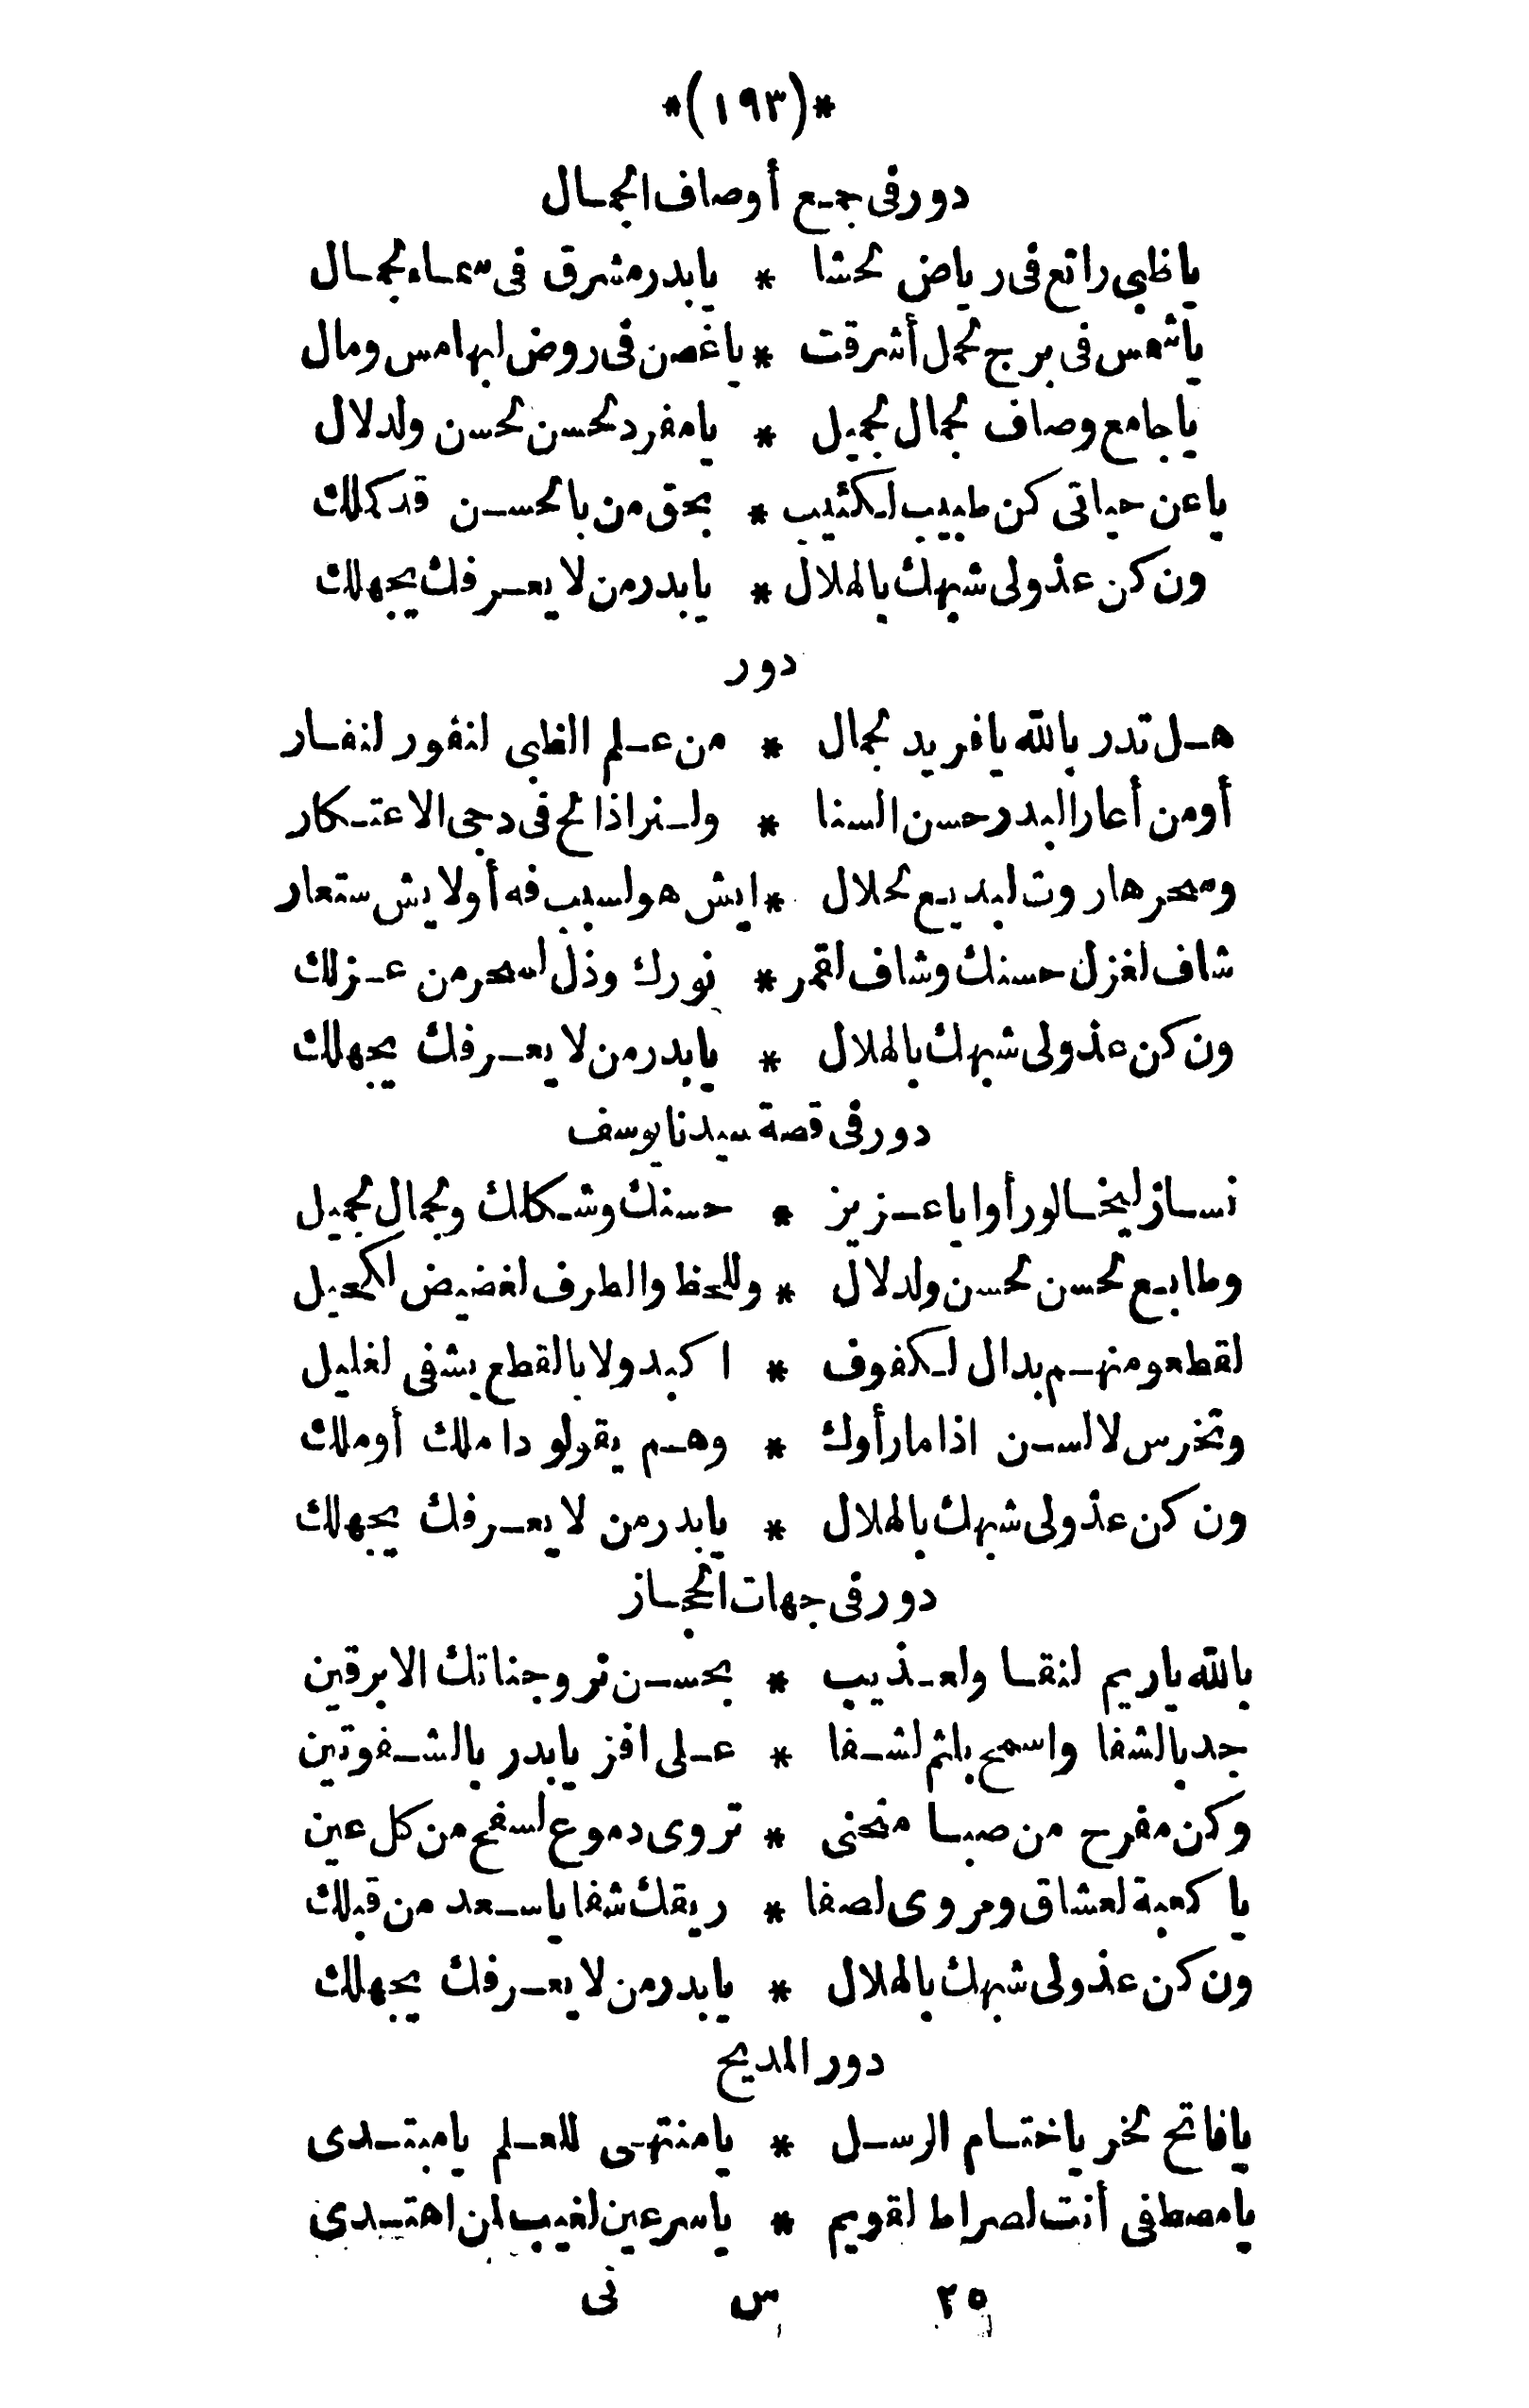 *(١٩٣)*
دور فى جمع أوصاف الجمال
يا ظبى راتع فى رياض لحشا * يا بدر مشرق فى سماء لجمال
يا شمس فى برج لحمل أشرقت * يا غصن فى روض ابها مس ومال
يا جامع وصاف لجمال لجميل * يا مفرد لحسن لحسن ولدلال
يا عن حياتى كن طبيب لكئيب * بحق من بالحسن قد كملك
ون كن عذولى شبهك بالهلال * يا بدر من لا يعرفك يجهلك
دور
هل تدر بالله يا فريد لجمال * من علم الظبى لنفور لنفار
أو من أعار البدر حسن السنا * ولنر اذا لح فى دجى الاعتكار
وسحر هاروت لبديع لحلال * ايش هو لسبب فه أولا يش ستعار
شاف لغزل حسنك وشاف لقمر * نورك وذل لسحر من عزلك
ون كن عذولى شبهك بالهلال * يا بدر من لا يعرفك يجهلك
دور فى قصة سيدنا يوسف
نسا زليخا لو رأوا يا عزيز * حسنك وشكلك ولجمال لجميل
وطابع لحسن لحسن ولدلال * وللحظ والطرف لغضيض لكحيل
لقطعو منهم بدال لكفوف * اكبد ولا بالقطع يشفى لغليل
وتخرس لالسن اذا ما رأوك * وهم يقولو دا ملك أو ملك
ون كن عذولى شبهك بالهلال * يا بدر من لا يعرفك يجهلك
دور فى جهات الحجاز
بالله ياريم لنقا ولعذيب * بحسن نر وجناتك الابرقين
جد بالشفا واسمح بلثم لشفا * على افز يا بدر بالشفوتين
وكن مفرح من صبا منحنى * تروى دموع لسفح من كل عين
يا كعبة لعشاق ومروى لصفا * ريقك شفا يا سعد من قبلك
ون كن عذولى شبهك بالهلال * يا بدر من لا يعرفك يجهلك
دور المديح
يا فاتح لخر يا ختام الرسل * يا منتهى للعلم يا مبتدى
يا مصطفى أنت لصراط لقويم * يا سر عين لغيب لمن اهتدى
٢٥ س نى